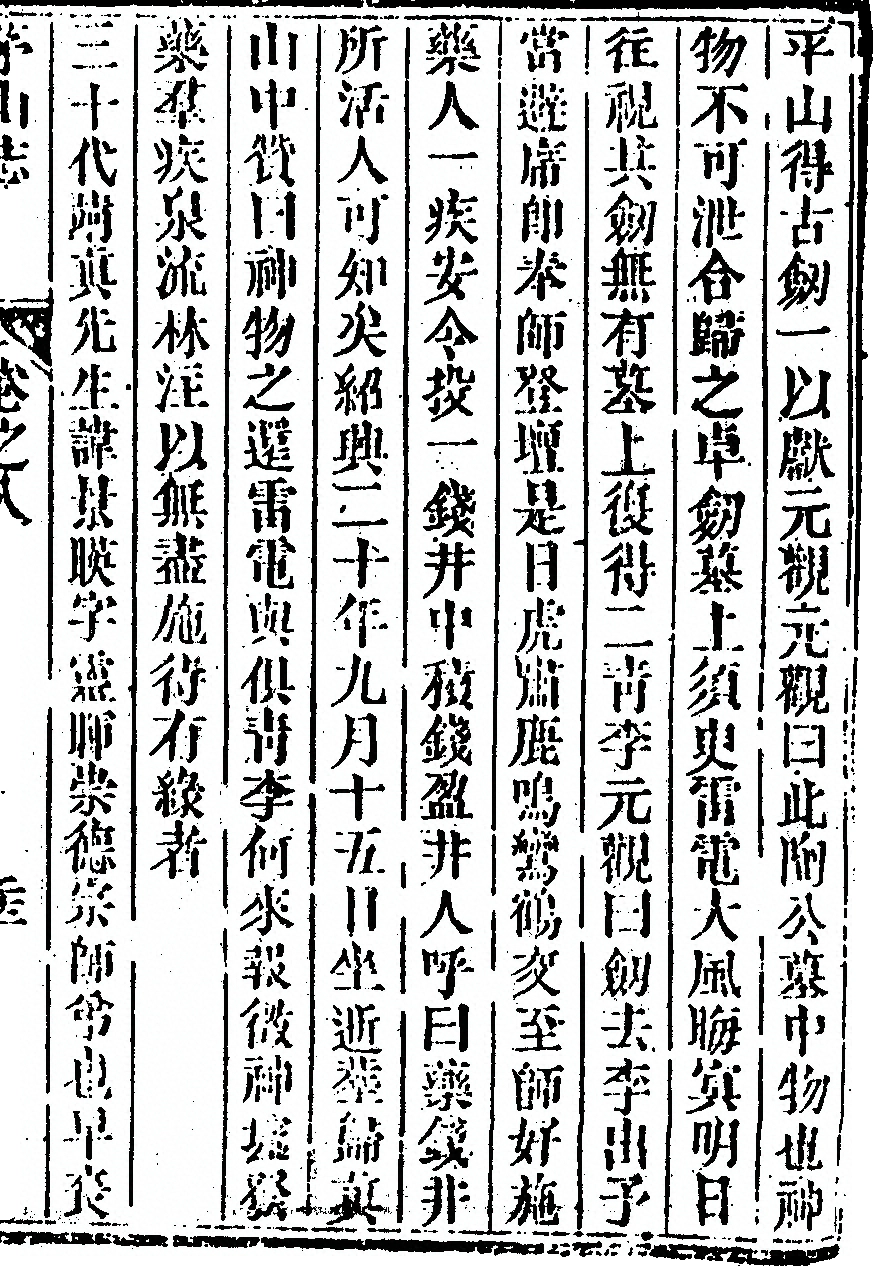 平山得古劒一以獻元觀元觀曰此陶公墓中物也神
物不可泄合歸之卓劒墓上須臾雷電大風晦冥明日
往視其劒無有墓上復得二青李元觀曰劒去李出予
當避席卽奉師登壇是日虎嘯鹿鳴鸞鶴交至師好施
藥人一疾安令投一錢井中積錢盈井人呼曰藥錢井
所活人可知矣紹興二十年九月十五日坐逝葬歸真
山中贊曰神物之還雷電與俱青李何來報微神墟發
藥羣疾泉流林洼以無盡施待有緣者
三十代嗣真先生諱景暎字靈暉崇德宗師弟也早喪
茅山志 卷之八